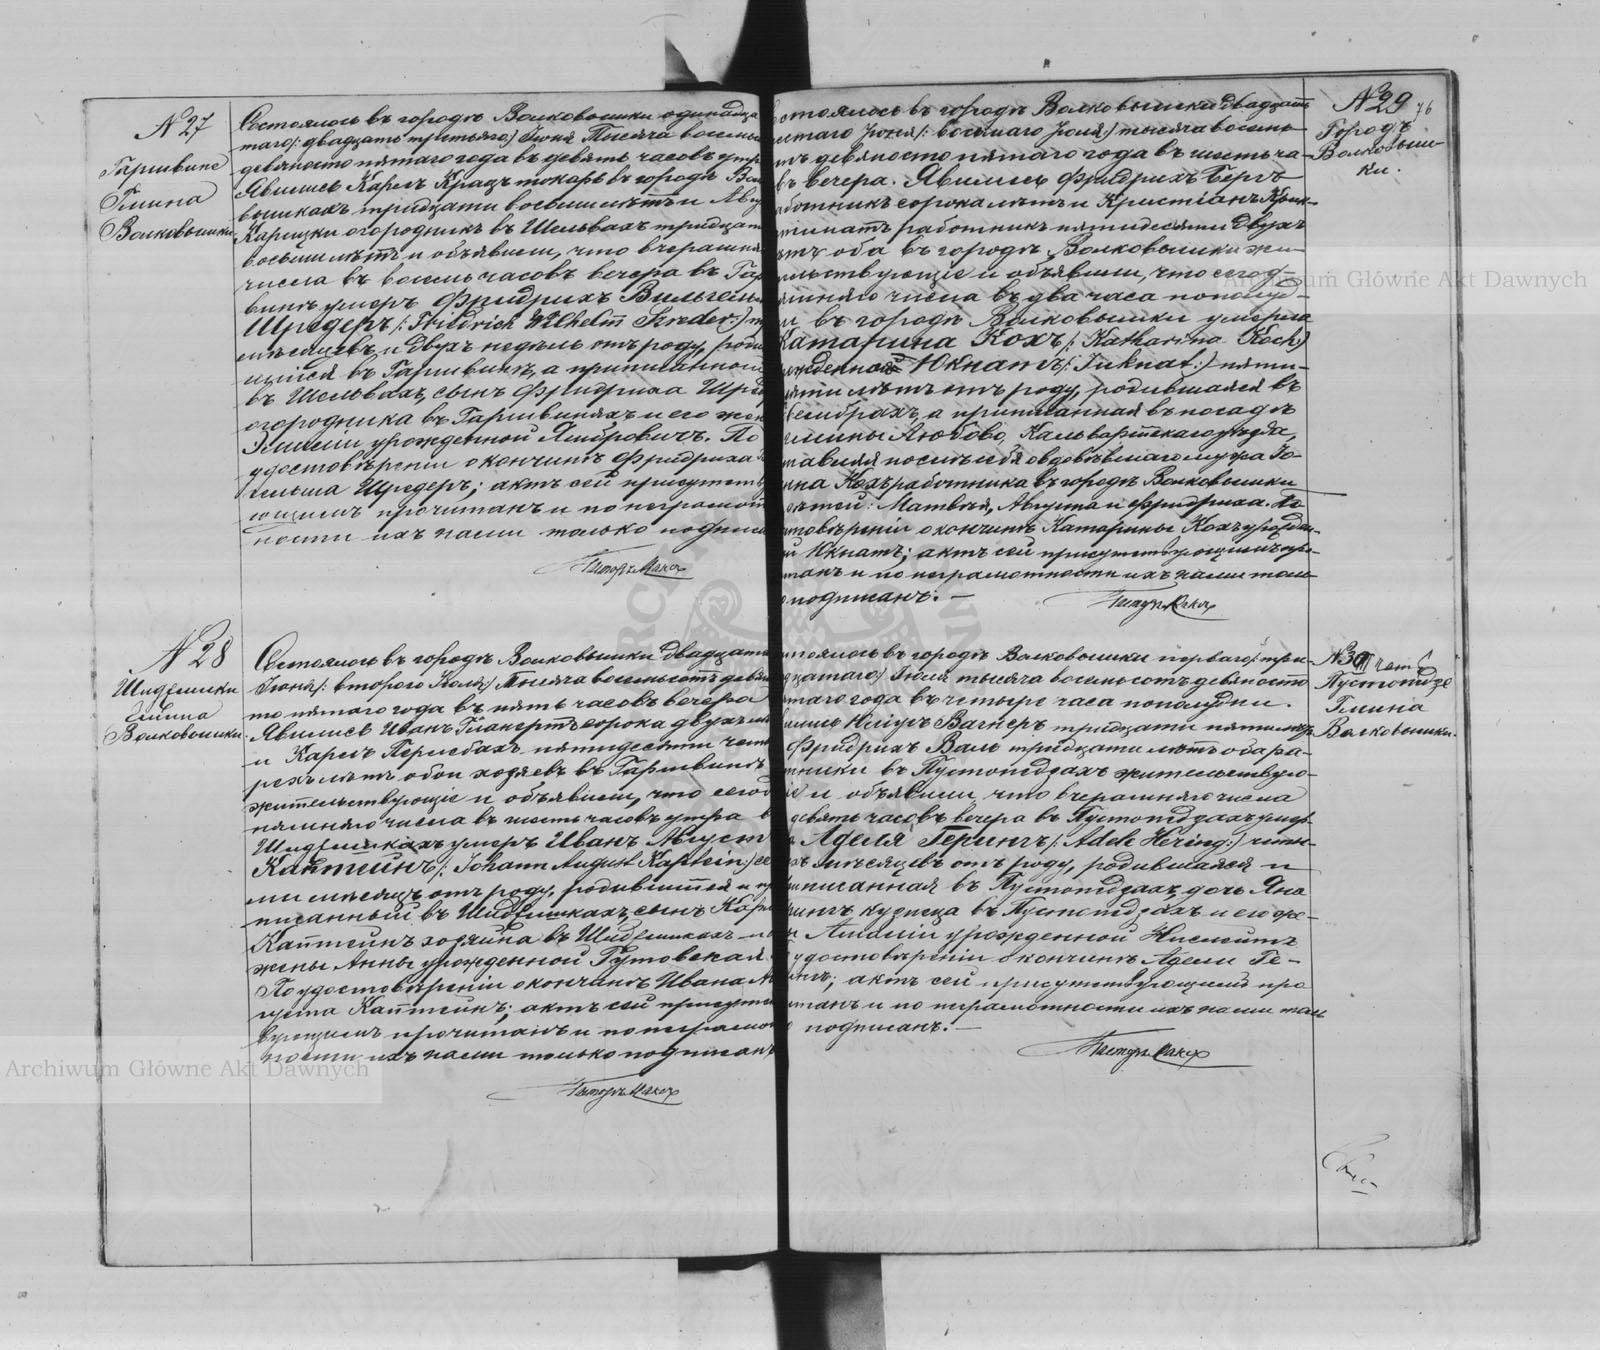 № 27
Гаршвине
Гмина
Волковышки
Состоялось въ городѣ Волковышки одинадца
таго /: двадцать третьяго :/ Іюня Тысяча восемь
девяносто пятаго года въ девять часовъ утра
Явились Карлъ Крацъ токарь въ городѣ Вол
вышкахъ тридцати восьми лѣтъ и Авгу
Карицки огородникъ въ Шельвахъ тридцати
восьми лѣтъ и объявили, что вчерашня
числа въ восемь часовъ вечера въ Гар
винѣ умеръ Фридрихъ Вильгельм
Шредеръ /: Friedrich Wilhelm Szreder :/
мѣсяцевъ и двухъ недѣль отъ роду, роди
шійся въ Гаршвинѣ, а приписанной
въ Шельвахъ, сынъ Фридриха Шред
огородника въ Гаршвиняхъ и его жен
Эмиліи урожденной Ямбровичъ. По
удостовѣреніи о кончинѣ Фридриха
гельма Шредеръ; актъ сей присутств
ющимъ прочитанъ и по неграмот
ности ихъ нами только подписа
Пасторъ
№ 28
Шидлишки
Гмина
Волковышки.
Состоялось въ городѣ Волковышки двадцата
Іюня /: втораго Іюля :/ тысяча восемьсотъ девян
то пятаго года въ пять часовъ вечера
Явились Иванъ сорока двухъ лѣ
и Карлъ Перлебахъ пятидесяти четы
рехъ лѣтъ обои хозяевъ въ Гаршвинѣ
жительствующіе и объявили, что сегод
няшняго числа въ шесть часовъ утра в
Шидлишкахъ умеръ Иванъ Август
Каптейнъ /: Johann August Kaptein :/ се
ми мѣсяцъ отъ роду, родившійся и пр
писанный въ Шидлишкахъ, сынъ Карл
Каптейнъ хозяина въ Шидлишкахъ и е
жены Анны урожденной Гутовская.
По удостовѣреніи о кончинѣ Ивана Ав
густа Каптейнъ; актъ сей присутст
вующимъ прочитанъ и по неграмот
ности ихъ нами только подписанъ
Пасторъ
№ 29 76
Городъ
Волковыш-
ки.
остоялось въ городѣ Волковышки двадцать
естаго Іюня /: восьмаго Іюля :/ тысяча восемь
тъ девяносто пятаго года въ шесть ча-
въ вечера. Явились Фридрихъ Бергъ
аботникъ сорока лѣтъ и Кристіанъ
работникъ пятидесяти двухъ
ѣтъ оба въ городѣ Волковышки жи-
ельствующіе и объявили, что сегод-
яшняго числа въ два часа пополуд-
и въ городѣ Волковышки умерла
Катарина Кохъ /: Katharina Koch :/
рожденная Юкнатъ /: Juknat :/ пяти-
лѣтъ отъ роду, родившаяся въ
а приписанная въ посадѣ
гмины Любово, Кальварійскаго уѣзда,
тавляя послѣ себя овдовѣвшаго мужа Го-
ана Кохъ работника въ городѣ Волковышки
ѣтей: Матвѣя, Августа и Фридриха. По
стовѣреніи о кончинѣ Катарины Кохъ урожден-
й Юкнатъ; актъ сей присутствующимъ про-
танъ и по неграмотности ихъ нами толь-
о подписанъ. —
Пасторъ
№ 30
Пустопѣдзе
Гмина
Волковышки.
остоялось въ городѣ Волковышки перваго /: три-
дцатаго :/ Іюля тысяча восемьсотъ девяносто
ятаго года въ четыре часа пополудни.
вились Юліусъ Вагнеръ тридцати пяти лѣтъ
Фридрихъ Валь тридцати лѣтъ оба ра-
тники въ Пустопѣдзахъ жительствую-
іе и объявили что вчерашняго числа
девять часовъ вечера въ Пустопѣдзахъ умер-
а Аделя Герингъ /: Adele Hering :/ четы-
хъ мѣсяцевъ отъ роду, родившаяся и
иписанная въ Пустопѣдзахъ, дочь Яна
рингъ кузнеца въ Пустопѣдзахъ и его же-
ы Амаліи урожденной
удостовѣреніи о кончинѣ Адели Ге-
ингъ; актъ сей присутствующимъ про
танъ и по неграмотности ихъ нами толь
о подписанъ. —
Пасторъ
Archiwum Główne Akt Dawnych
Archiwum Główne Akt Dawnych